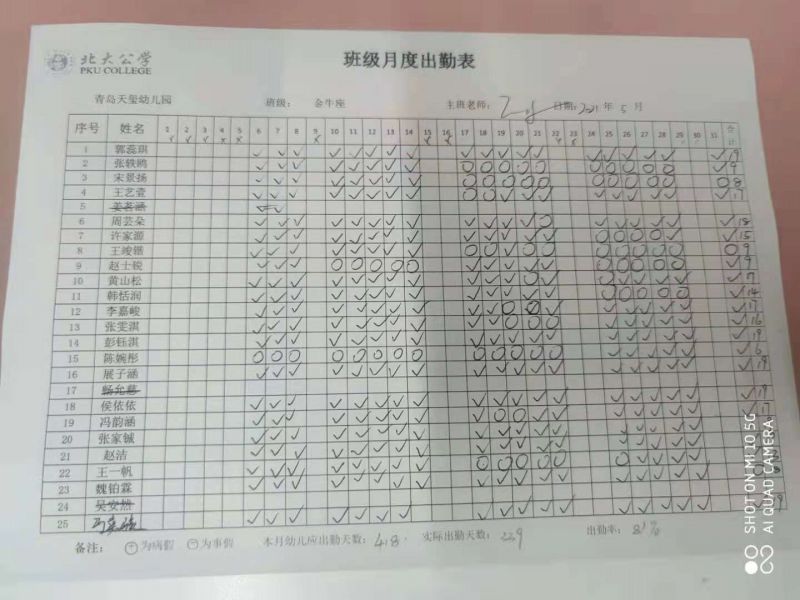 北大公学
PKU COLLEGE
班级月度出勤表
青岛天玺幼儿园 班级: 金牛座 主班老师: 日期: 2021年 5 月
序号 姓名 1 2 3 4 5 6 7 8 9 10 11 12 13 14 15 16 17 18 19 20 21 22 23 24 25 26 27 28 29 30 31 合计
1 郭蕊琪 19
2 张轶鸥 9
3 宋景扬 8
4 王艺萱 17
5 姜茗涵
6 周芸朵 18
7 许家源 15
8 王竣锴 9
9 赵士锐 9
10 黄山松 17
11 韩恬润 14
12 李嘉峻 17
13 张雯淇 16
14 彭钰淇 19
15 陈婉彤 6
16 展子涵 19
17
18 侯依依 19
19 冯韵涵 17
20 张家铖
21 赵洁
22 王一帆
23 魏铂霖
24 吴安然
25
备注: + 为病假 − 为事假 本月幼儿应出勤天数: 418 实际出勤天数: 出勤率: 81%
SHOT ON MI 10 5G
AI QUAD CAMERA